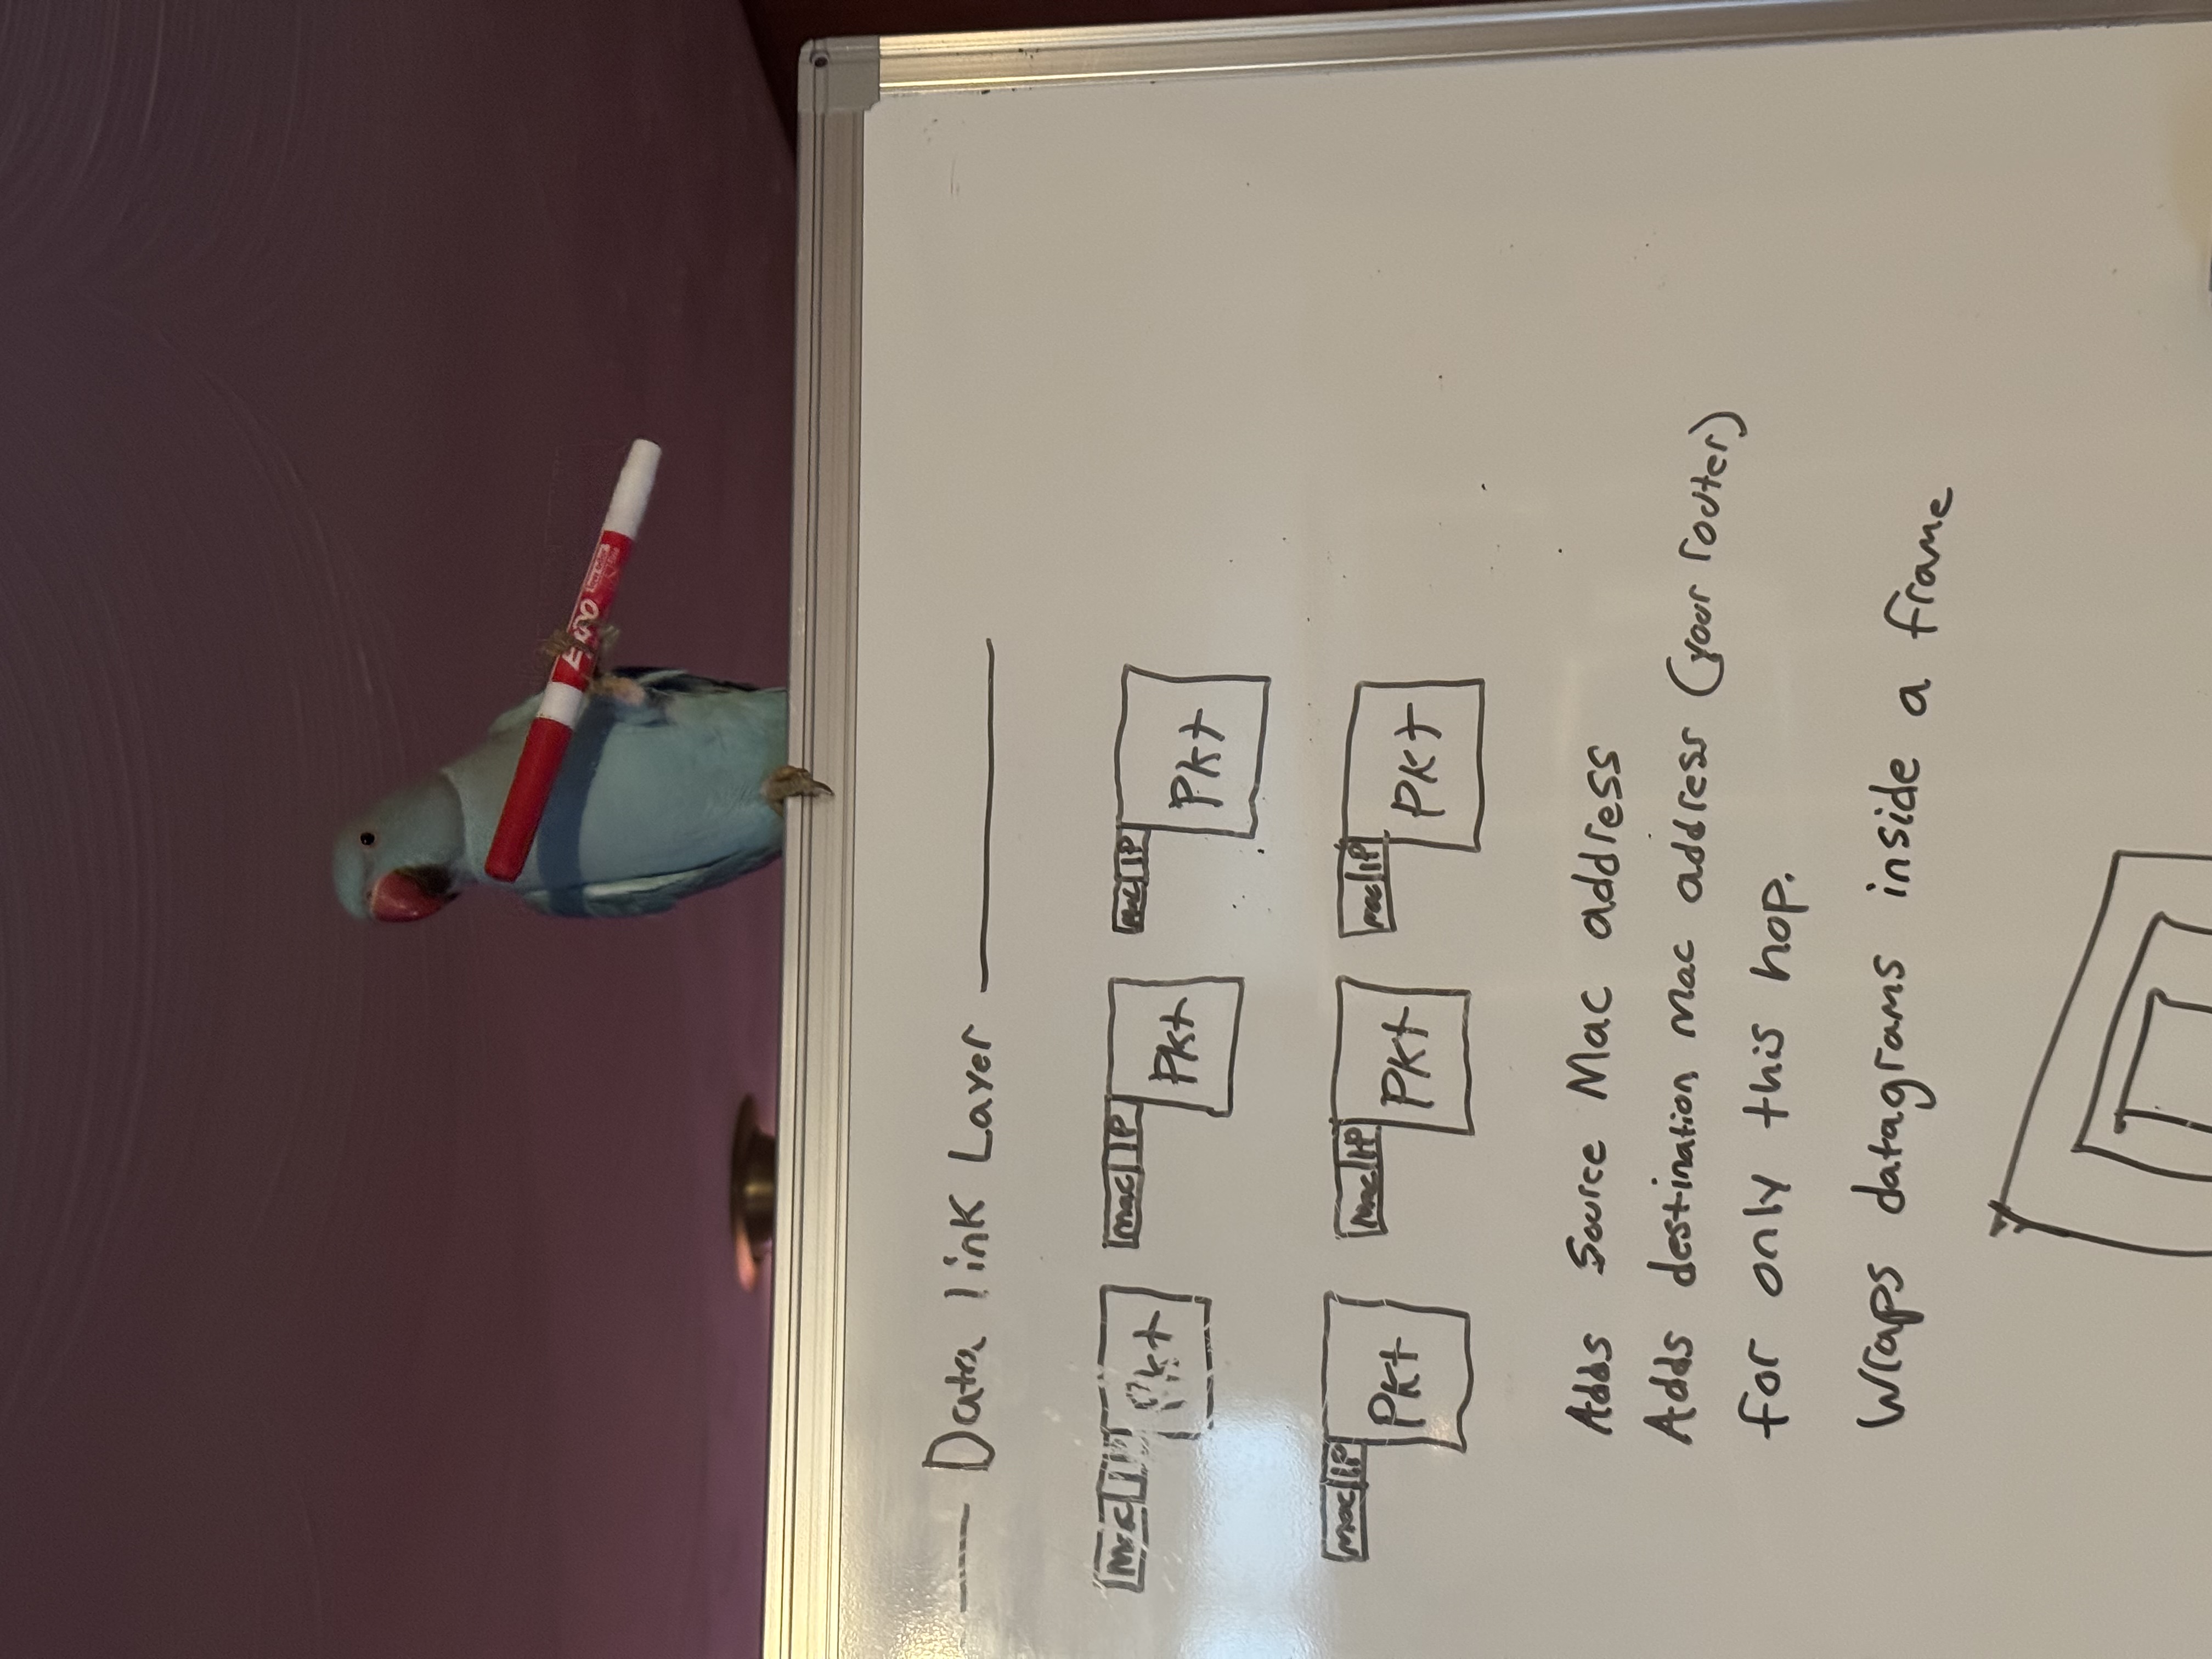 EXPO
Data link Layer
mac IP mac IP mac IP
Pkt Pkt Pkt
mac IP mac IP mac IP
Pkt Pkt Pkt
Adds Source Mac address
Adds destination Mac address (your router)
for only this hop.
Wraps datagrams inside a frame